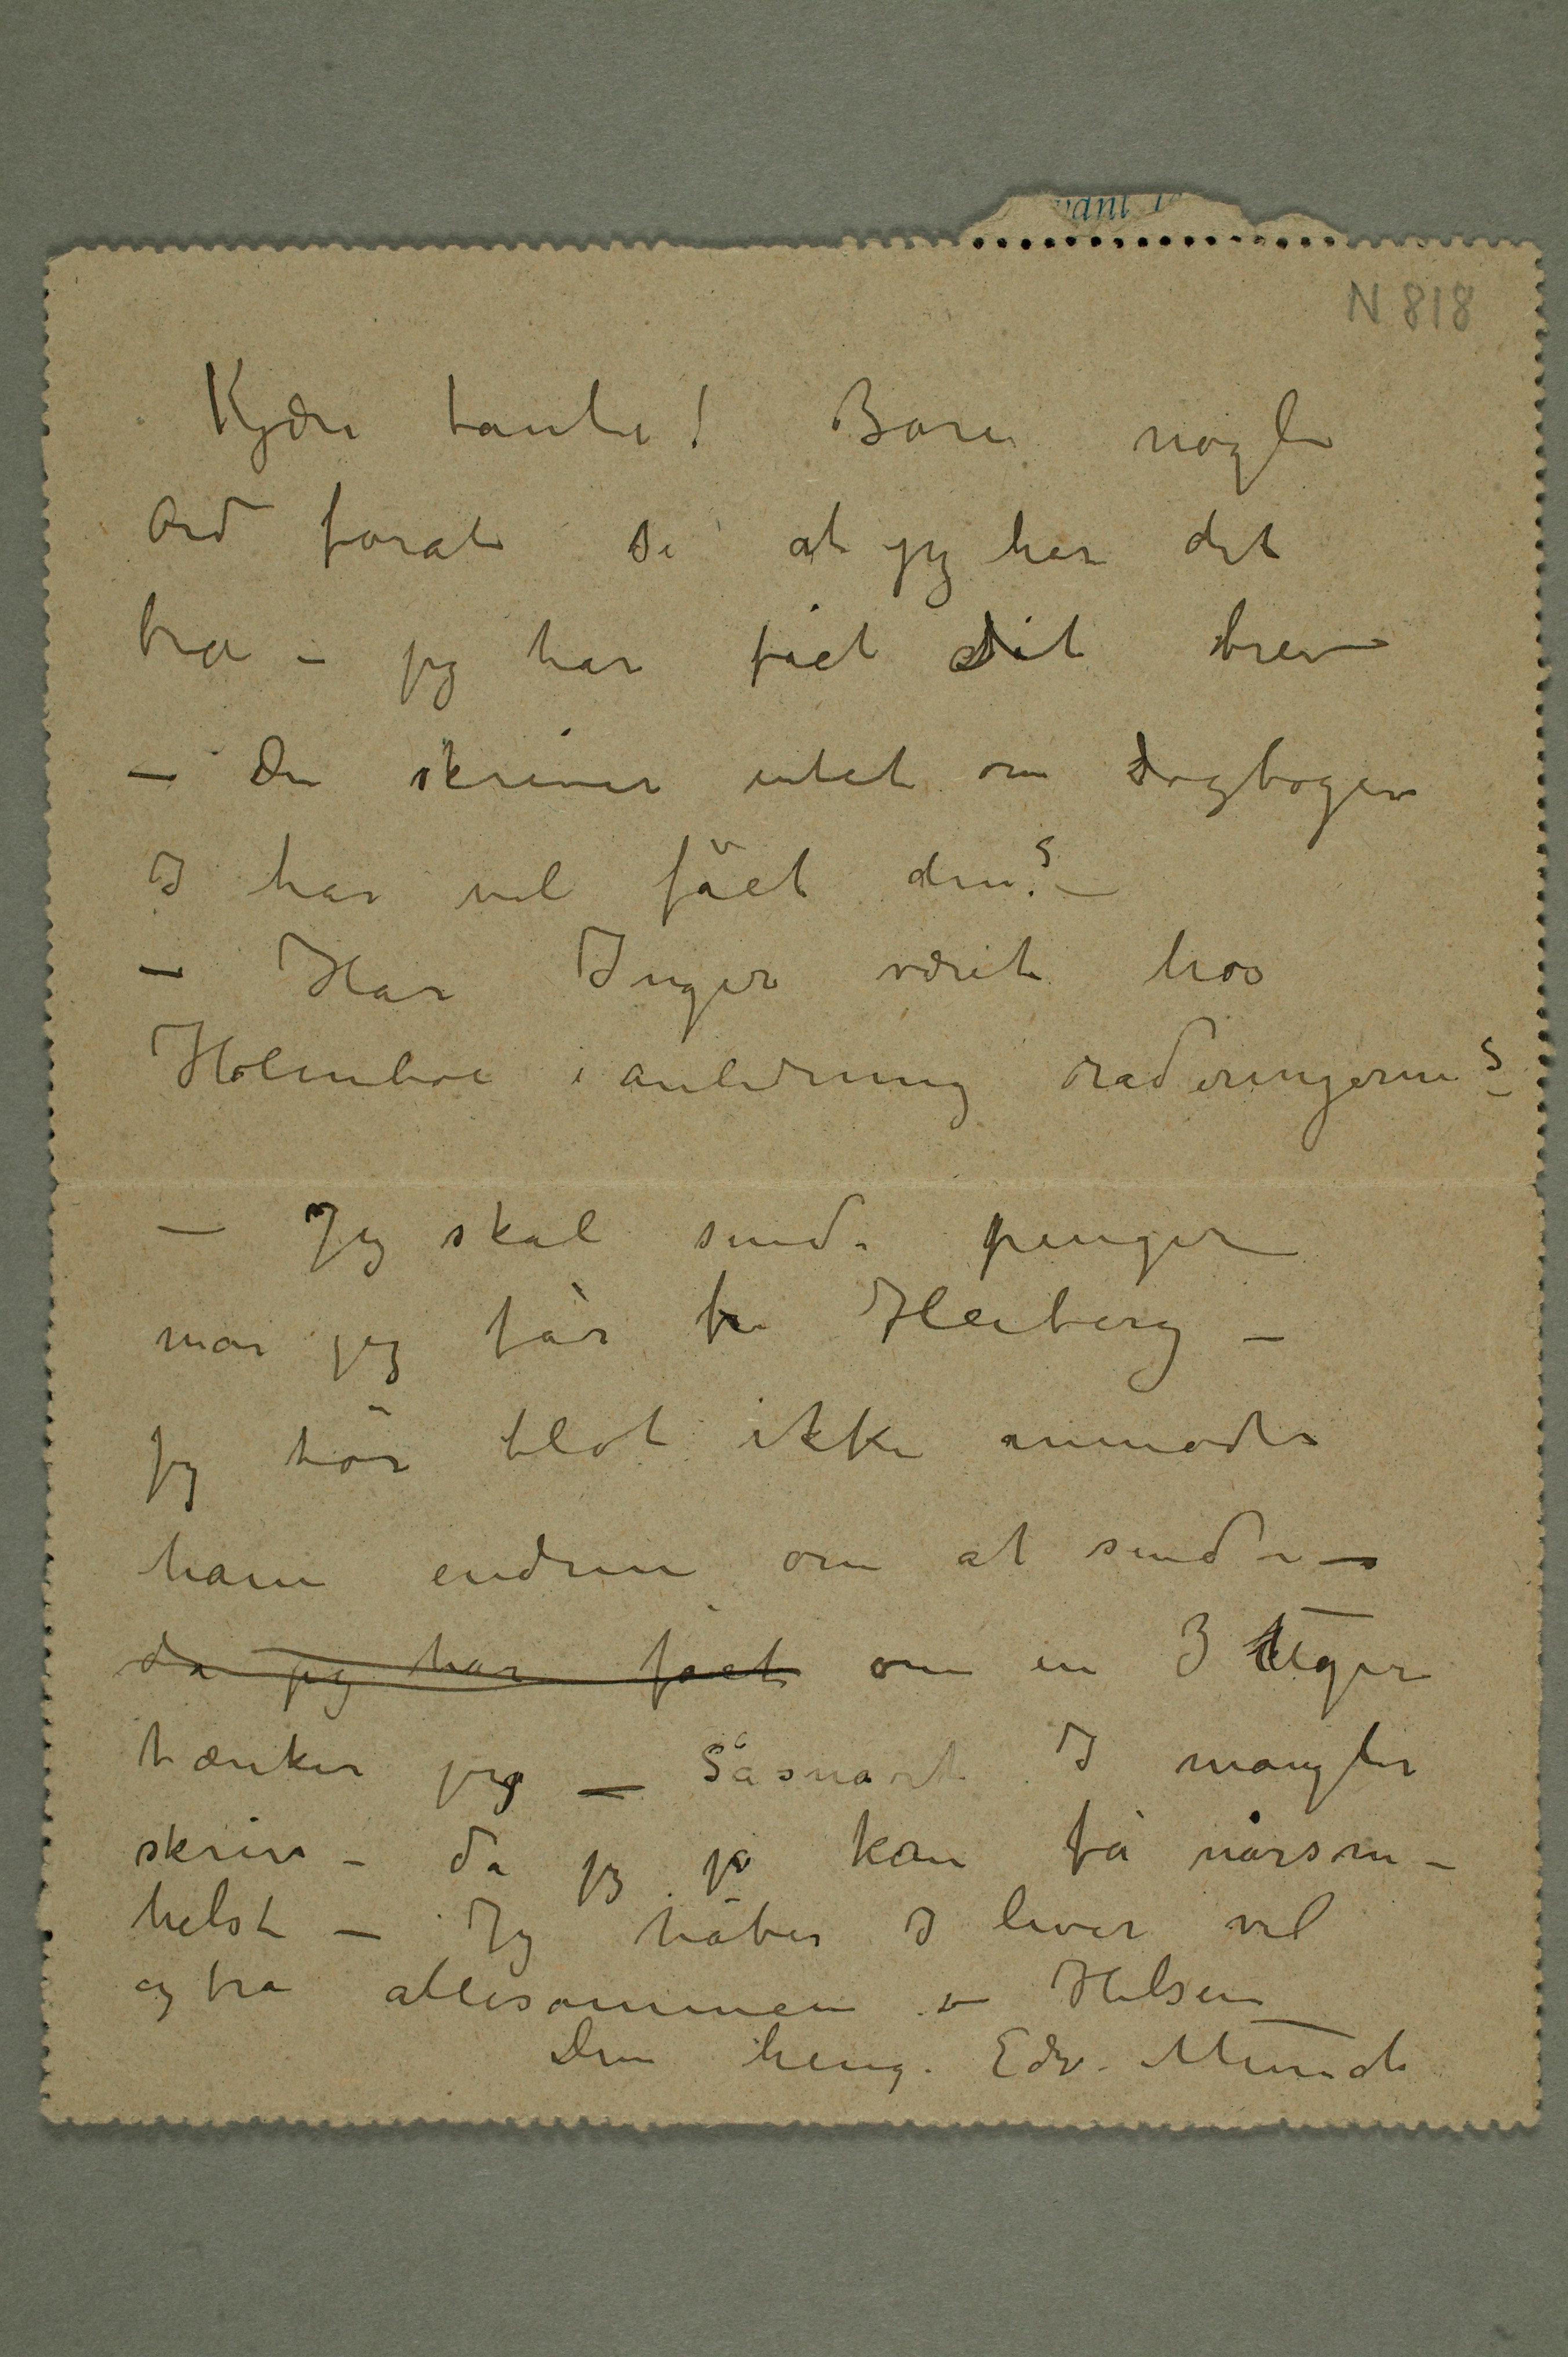 N 818
Kjære tante! Bare nogle
Ord forat si at jeg har det
bra – jeg har fået Dit brev
– Du skriver intet om dagbogen
I har vel fået den? –
– Har Inger været hos
Holmboe i anledning raderingerne?
– Jeg skal sende penger
når jeg får fra Heiberg –
jeg tör blot ikke anmode
ham endnu om at sende –
da jeg har fået om en 3 Uger
tænker jeg – Såsnart I mangler
skriv – da jeg jo kan få nårsom-
helst – Jeg håber I lever vel
og bra allesammen – Hilsen
Din heng. Edv. Munch